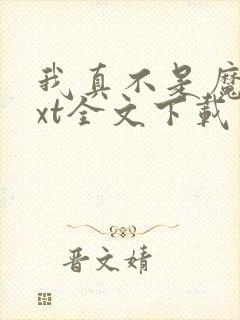 我真不是魔
xt全文下载
晋文婧